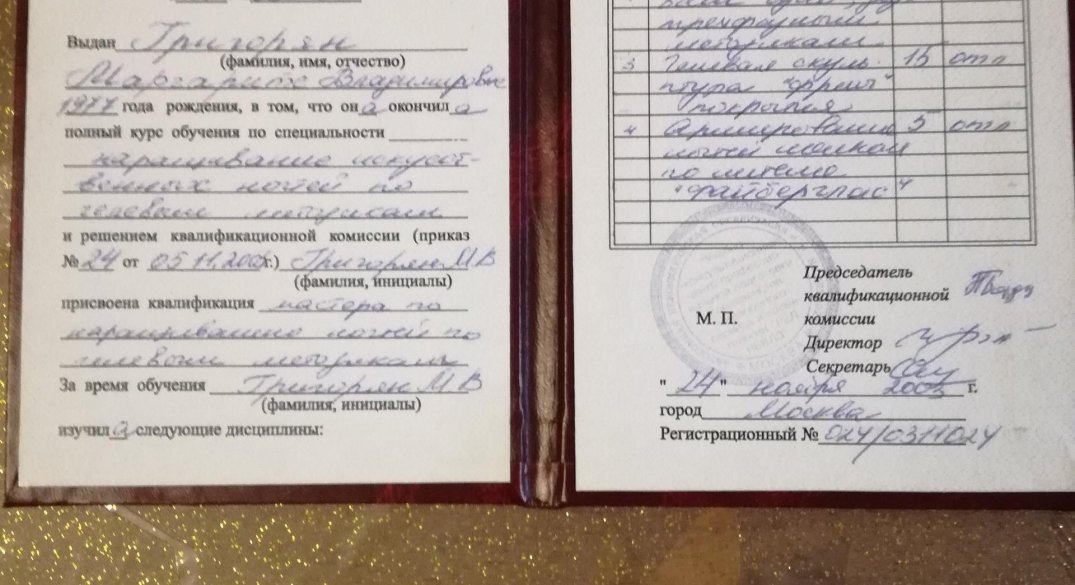 Выдан Григорян
(фамилия, имя, отчество)
Маргарите Владимировне
1977 года рождения, в том, что она окончила
полный курс обучения по специальности
наращивание искусст-
венных ногтей по
гелевым методикам
и решением квалификационной комиссии (приказ
№ 24 от 05.11.2003г.) Григорян М В
(фамилия, инициалы)
присвоена квалификация мастера по
наращиванию ногтей по
гелевым методикам
За время обучения Григорян М В
(фамилия, инициалы)
изучила следующие дисциплины:
трехфазными
методиками
3 Гелевая скуль- 15 отл
птура "френч"
покрытия
4 Армирование 5 отл
ногтей шелком
по системе
"файберглас"
М. П.
Председатель
квалификационной
комиссии
Директор
Секретарь
"24" ноября 2003 г.
город Москва
Регистрационный № 024/0311024